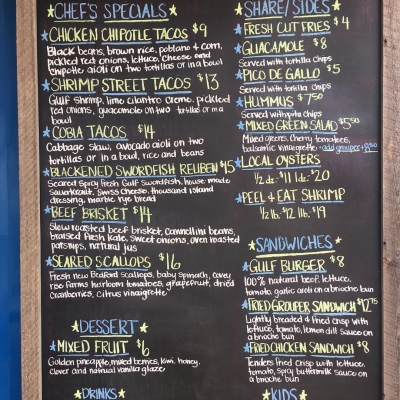 CHEF'S SPECIALS
CHICKEN CHIPOTLE TACOS $9
Black beans, brown rice, poblano & corn,
pickled red onions, lettuce, cheese and
chipotle aioli on two tortillas or in a bowl
SHRIMP STREET TACOS $13
Gulf shrimp, lime cilantro creme, pickled
red onions, guacamole on two tortillas or in a
bowl
COBIA TACOS $14
Cabbage slaw, avocado aioli on two
tortillas or in a bowl, rice and beans
BLACKENED SWORDFISH REUBEN $15
Seared spicy fresh Gulf Swordfish, house made
sauerkraut, swiss cheese, thousand island
dressing, marble rye bread
BEEF BRISKET $14
Slow roasted beef brisket, cannellini beans,
braised fresh kale, sweet onions, oven roasted
parsnips, natural jus
SEARED SCALLOPS $16
Fresh New Bedford scallops, baby spinach, covey
rise farms heirloom tomatoes, grapefruit, dried
cranberries, citrus vinaigrette
DESSERT
MIXED FRUIT $6
Golden pineapple, mixed berries, kiwi, honey,
clover and natural vanilla glaze
DRINKS
SHARE/SIDES
FRESH CUT FRIES $4
GUACAMOLE $8
Served with tortilla chips
PICO DE GALLO $5
Served with tortilla chips
HUMMUS $7.50
Served with pita chips
MIXED GREEN SALAD $5.50
Mixed greens, cherry tomatoes,
balsamic vinaigrette - add grouper +
LOCAL OYSTERS
1/2 dz. $11 1 dz. $20
PEEL & EAT SHRIMP
1/2 lb. $12 1 lb. $19
SANDWICHES
GULF BURGER $8
100% natural beef, lettuce,
tomato, garlic aioli on a brioche bun
FRIED GROUPER SANDWICH $12.75
Lightly breaded & fried crisp with
lettuce, tomato, lemon dill sauce on
a brioche bun
FRIED CHICKEN SANDWICH $8
Tenders fried crisp with lettuce,
tomato, spicy buttermilk sauce on
a brioche bun
KIDS